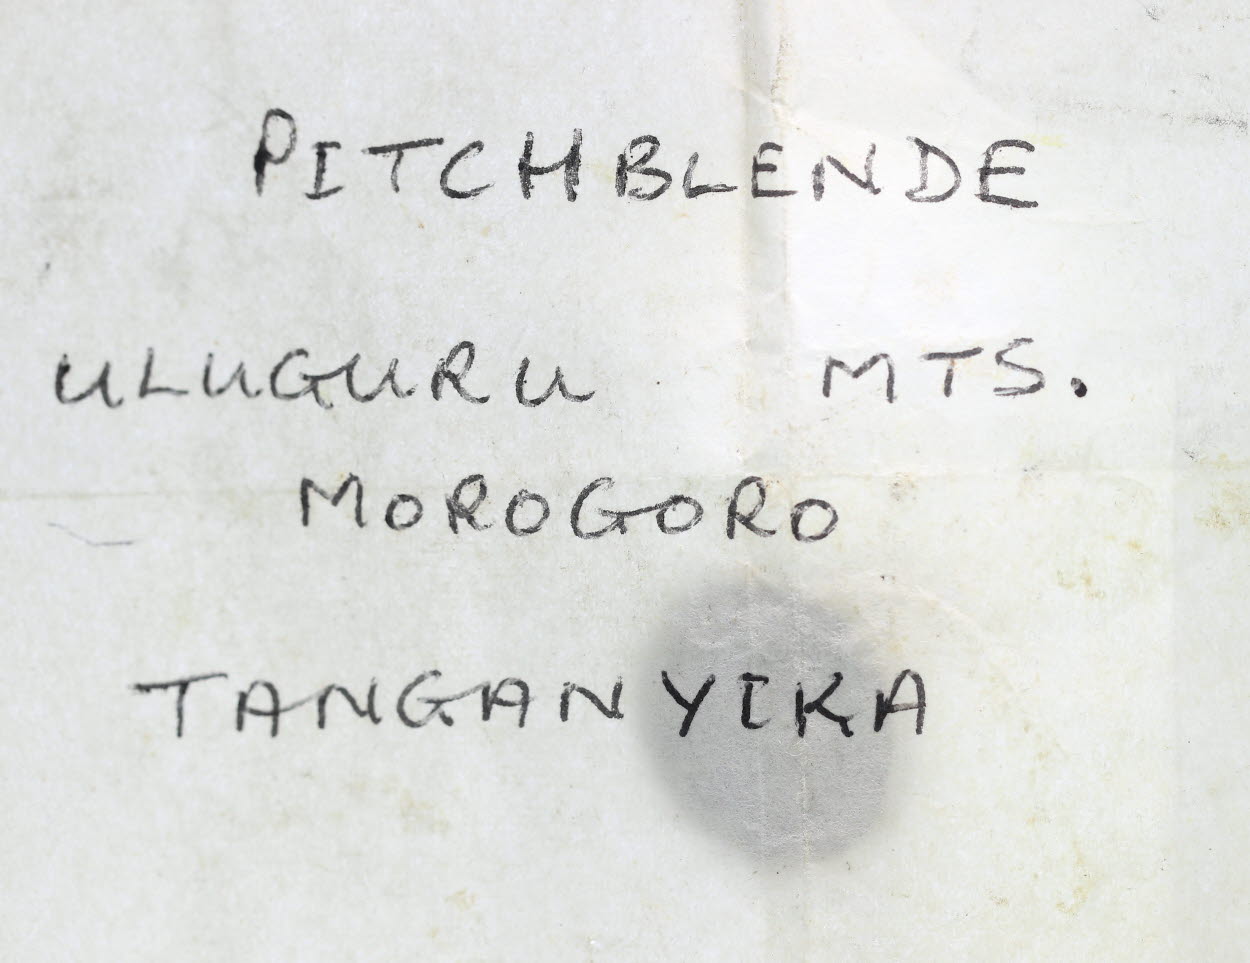 PITCHBLENDE
ULUGURU MTS.
MOROGORO
TANGANYIKA